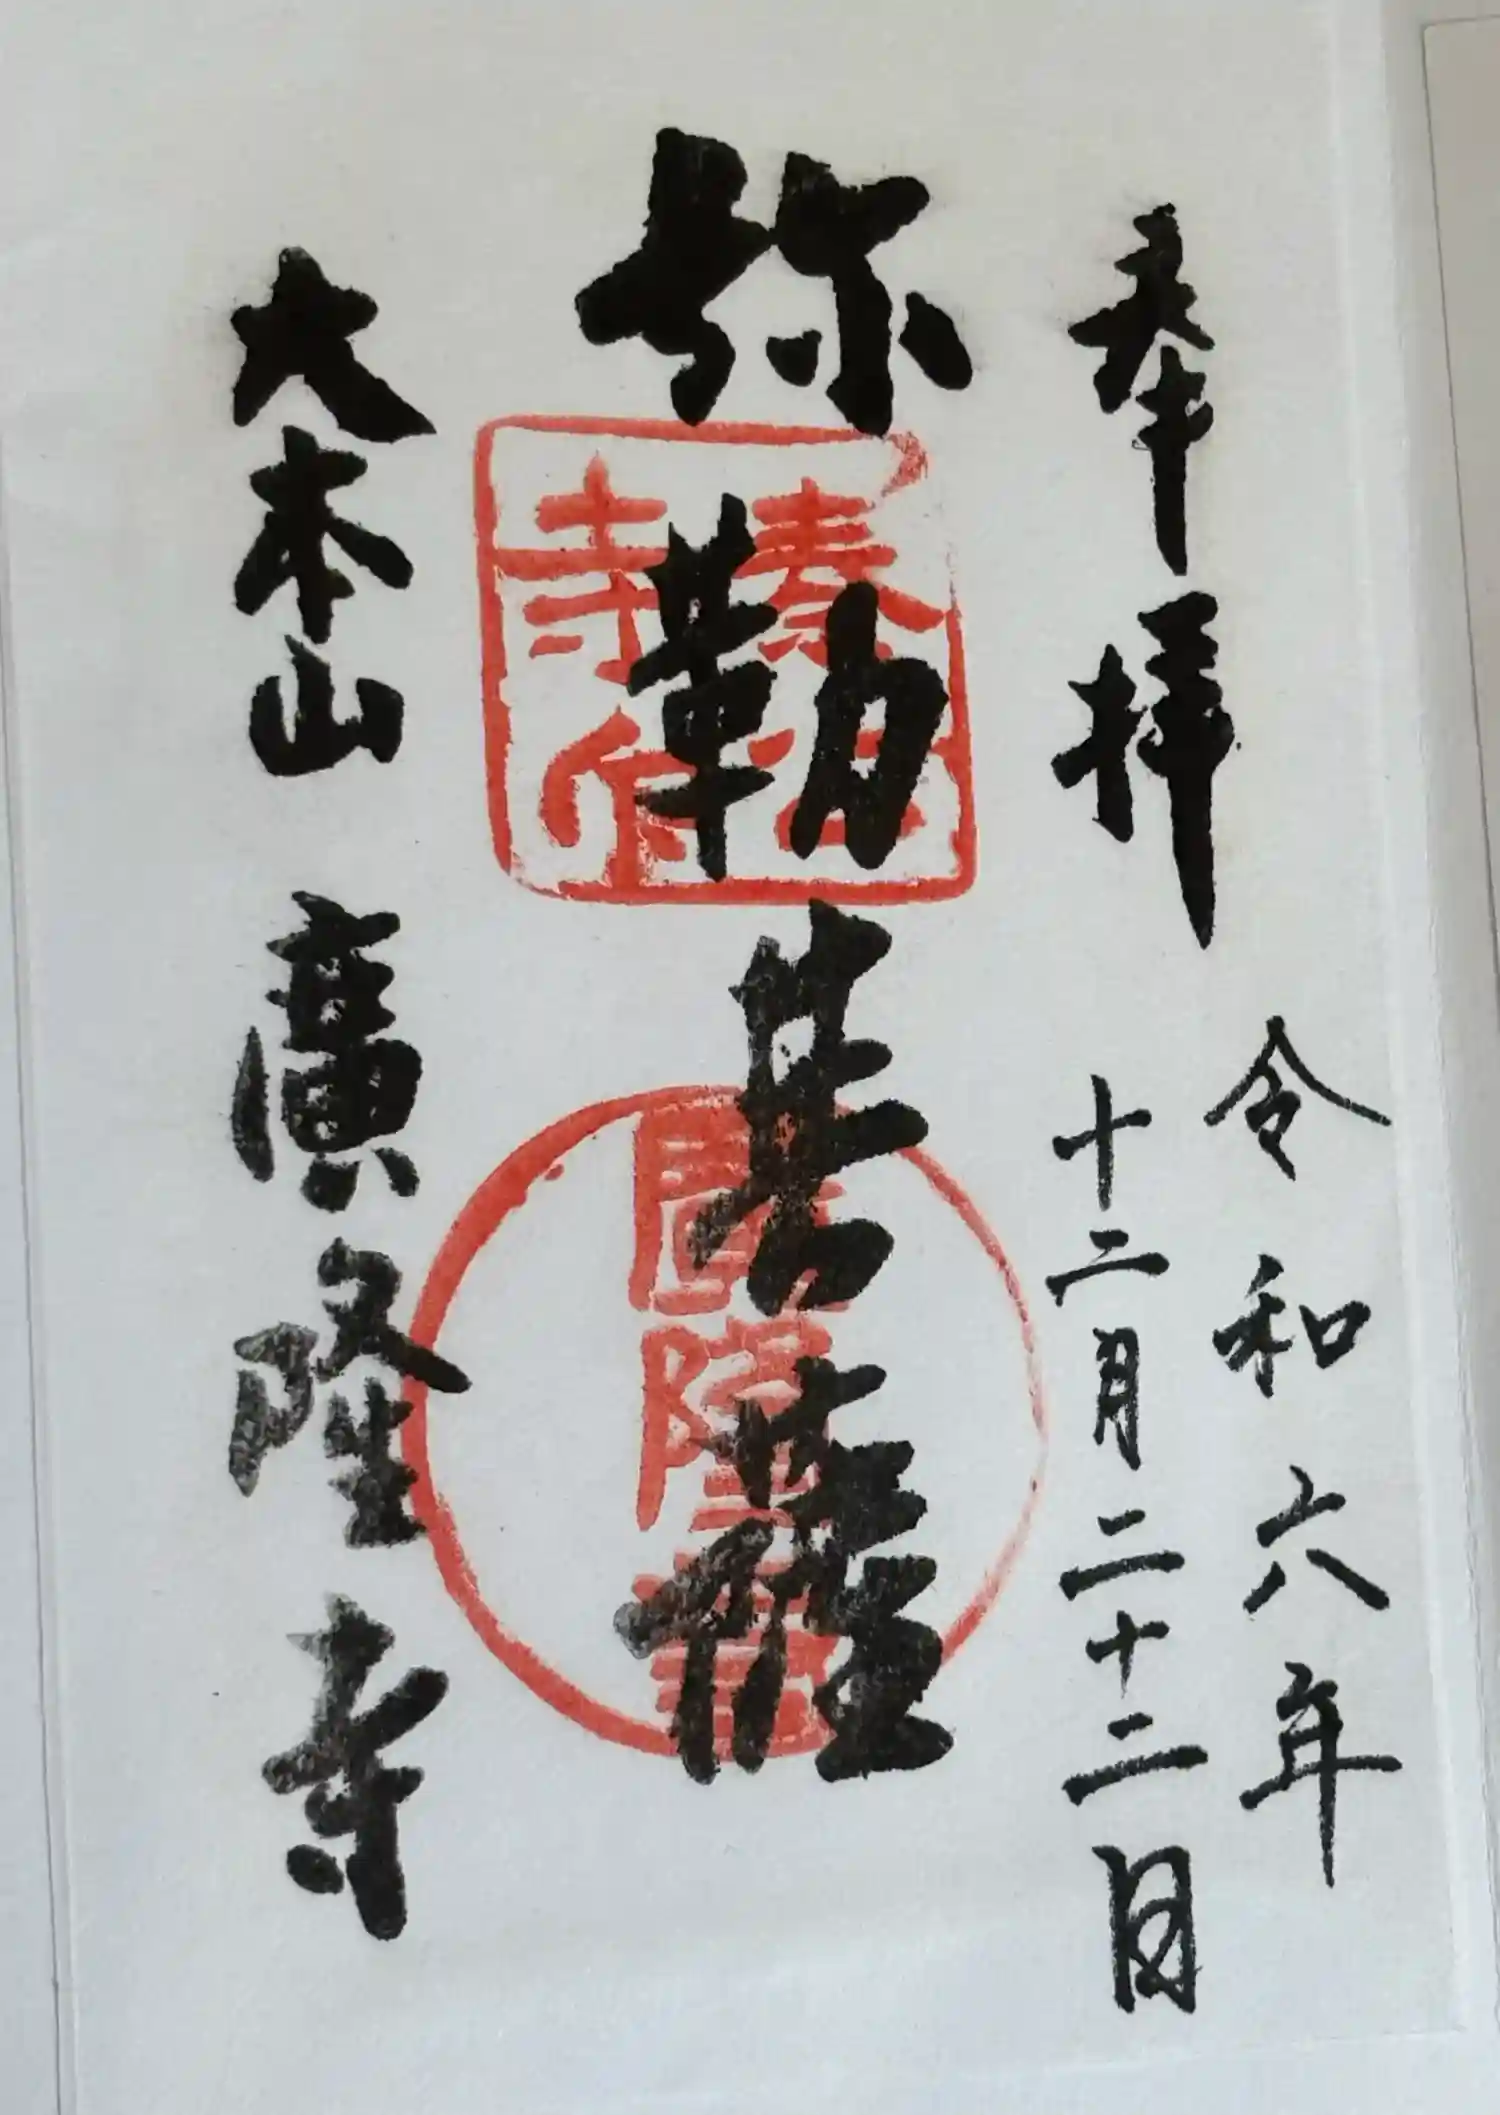 奉拝
令和六年
十二月二十二日
弥勒菩薩
大本山 廣隆寺
秦公
寺府